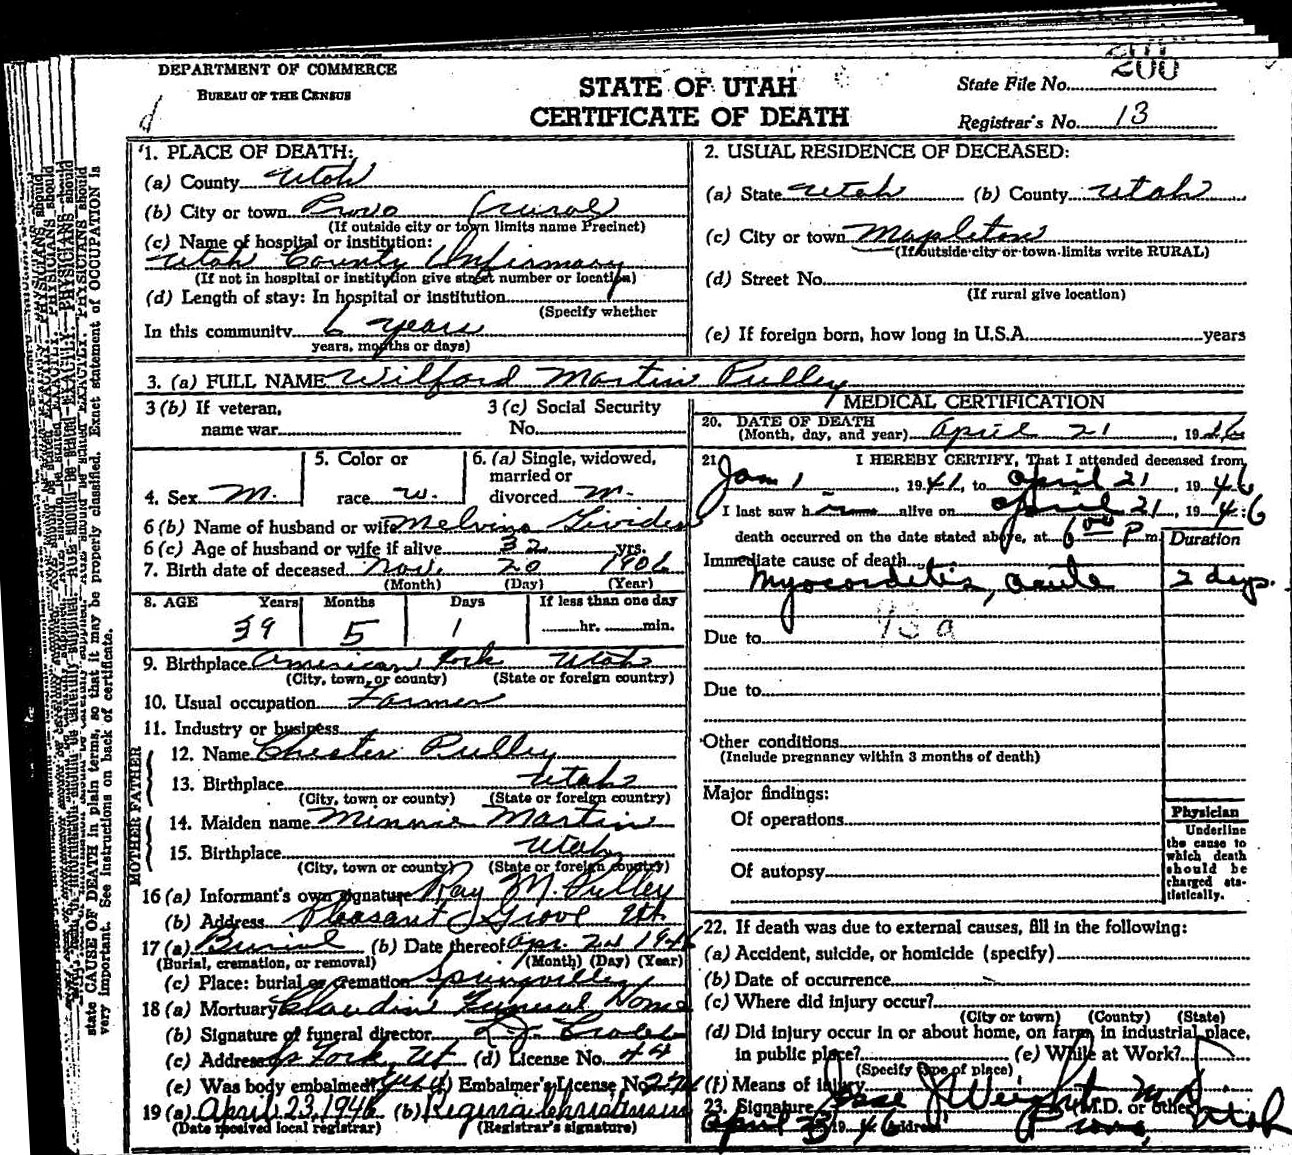 DEPARTMENT OF COMMERCE
BUREAU OF THE CENSUS
STATE OF UTAH
CERTIFICATE OF DEATH
State File No. 200
Registrar's No. 13
1. PLACE OF DEATH:
(a) County Utah
(b) City or town Provo (rural
(If outside city or town limits name Precinct)
(c) Name of hospital or institution:
Utah County Infirmary
(If not in hospital or institution give street number or location)
(d) Length of stay: In hospital or institution
(Specify whether
In this community 6 years
years, months or days)
2. USUAL RESIDENCE OF DECEASED:
(a) State Utah (b) County Utah
(c) City or town Mapleton
(If outside city or town limits write RURAL)
(d) Street No.
(If rural give location)
(e) If foreign born, how long in U.S.A. years
3. (a) FULL NAME Wilford Martin Pulley
3 (b) If veteran,
name war
3 (c) Social Security
No.
4. Sex M.
5. Color or
race w.
6. (a) Single, widowed,
married or
divorced M.
6 (b) Name of husband or wife Melvina
6 (c) Age of husband or wife if alive 32 yrs.
7. Birth date of deceased Nov. 20 1906
(Month) (Day) (Year)
8. AGE Years Months Days If less than one day
39 5 1 hr. min.
9. Birthplace American Fork Utah
(City, town, or county) (State or foreign country)
10. Usual occupation Farmer
11. Industry or business
FATHER
12. Name Chester Pulley
13. Birthplace Utah
(City, town or county) (State or foreign country)
MOTHER
14. Maiden name Minnie Martin
15. Birthplace Utah
(City, town or county) (State or foreign country)
16 (a) Informant's own signature Ray M. Pulley
(b) Address Pleasant Grove Ut.
17 (a) Burial (b) Date thereof Apr. 24 1946
(Burial, cremation, or removal) (Month) (Day) (Year)
(c) Place: burial or cremation Springville
18 (a) Mortuary Funeral Home
(b) Signature of funeral director
(c) Address Fork, Ut (d) License No. 44
(e) Was body embalmed? Yes (f) Embalmer's License No.
19 (a) April 23, 1946 (b) Regina Christensen
(Date received local registrar) (Registrar's signature)
MEDICAL CERTIFICATION
20. DATE OF DEATH
(Month, day, and year) April 21, 1946
21. I HEREBY CERTIFY, That I attended deceased from
Jan 1, 1941, to April 21, 1946
I last saw him alive on April 21, 1946
death occurred on the date stated above, at 6 00 P m.
Duration
Immediate cause of death
Myocarditis, acute 2 days.
Due to 93a
Due to
Other conditions
(Include pregnancy within 3 months of death)
Major findings:
Of operations
Of autopsy
Physician
Underline
the cause to
which death
should be
charged sta-
tistically.
22. If death was due to external causes, fill in the following:
(a) Accident, suicide, or homicide (specify)
(b) Date of occurrence
(c) Where did injury occur?
(City or town) (County) (State)
(d) Did injury occur in or about home, on farm, in industrial place,
in public place? (e) While at Work?
(Specify type of place)
(f) Means of injury
23. Signature Jesse J Weight M.D.
(M.D. or other)
April 23 1946 Address Provo, Utah
state CAUSE OF DEATH in plain terms, so that it may be properly classified. Exact statement of OCCUPATION is
very important. See instructions on back of certificate.